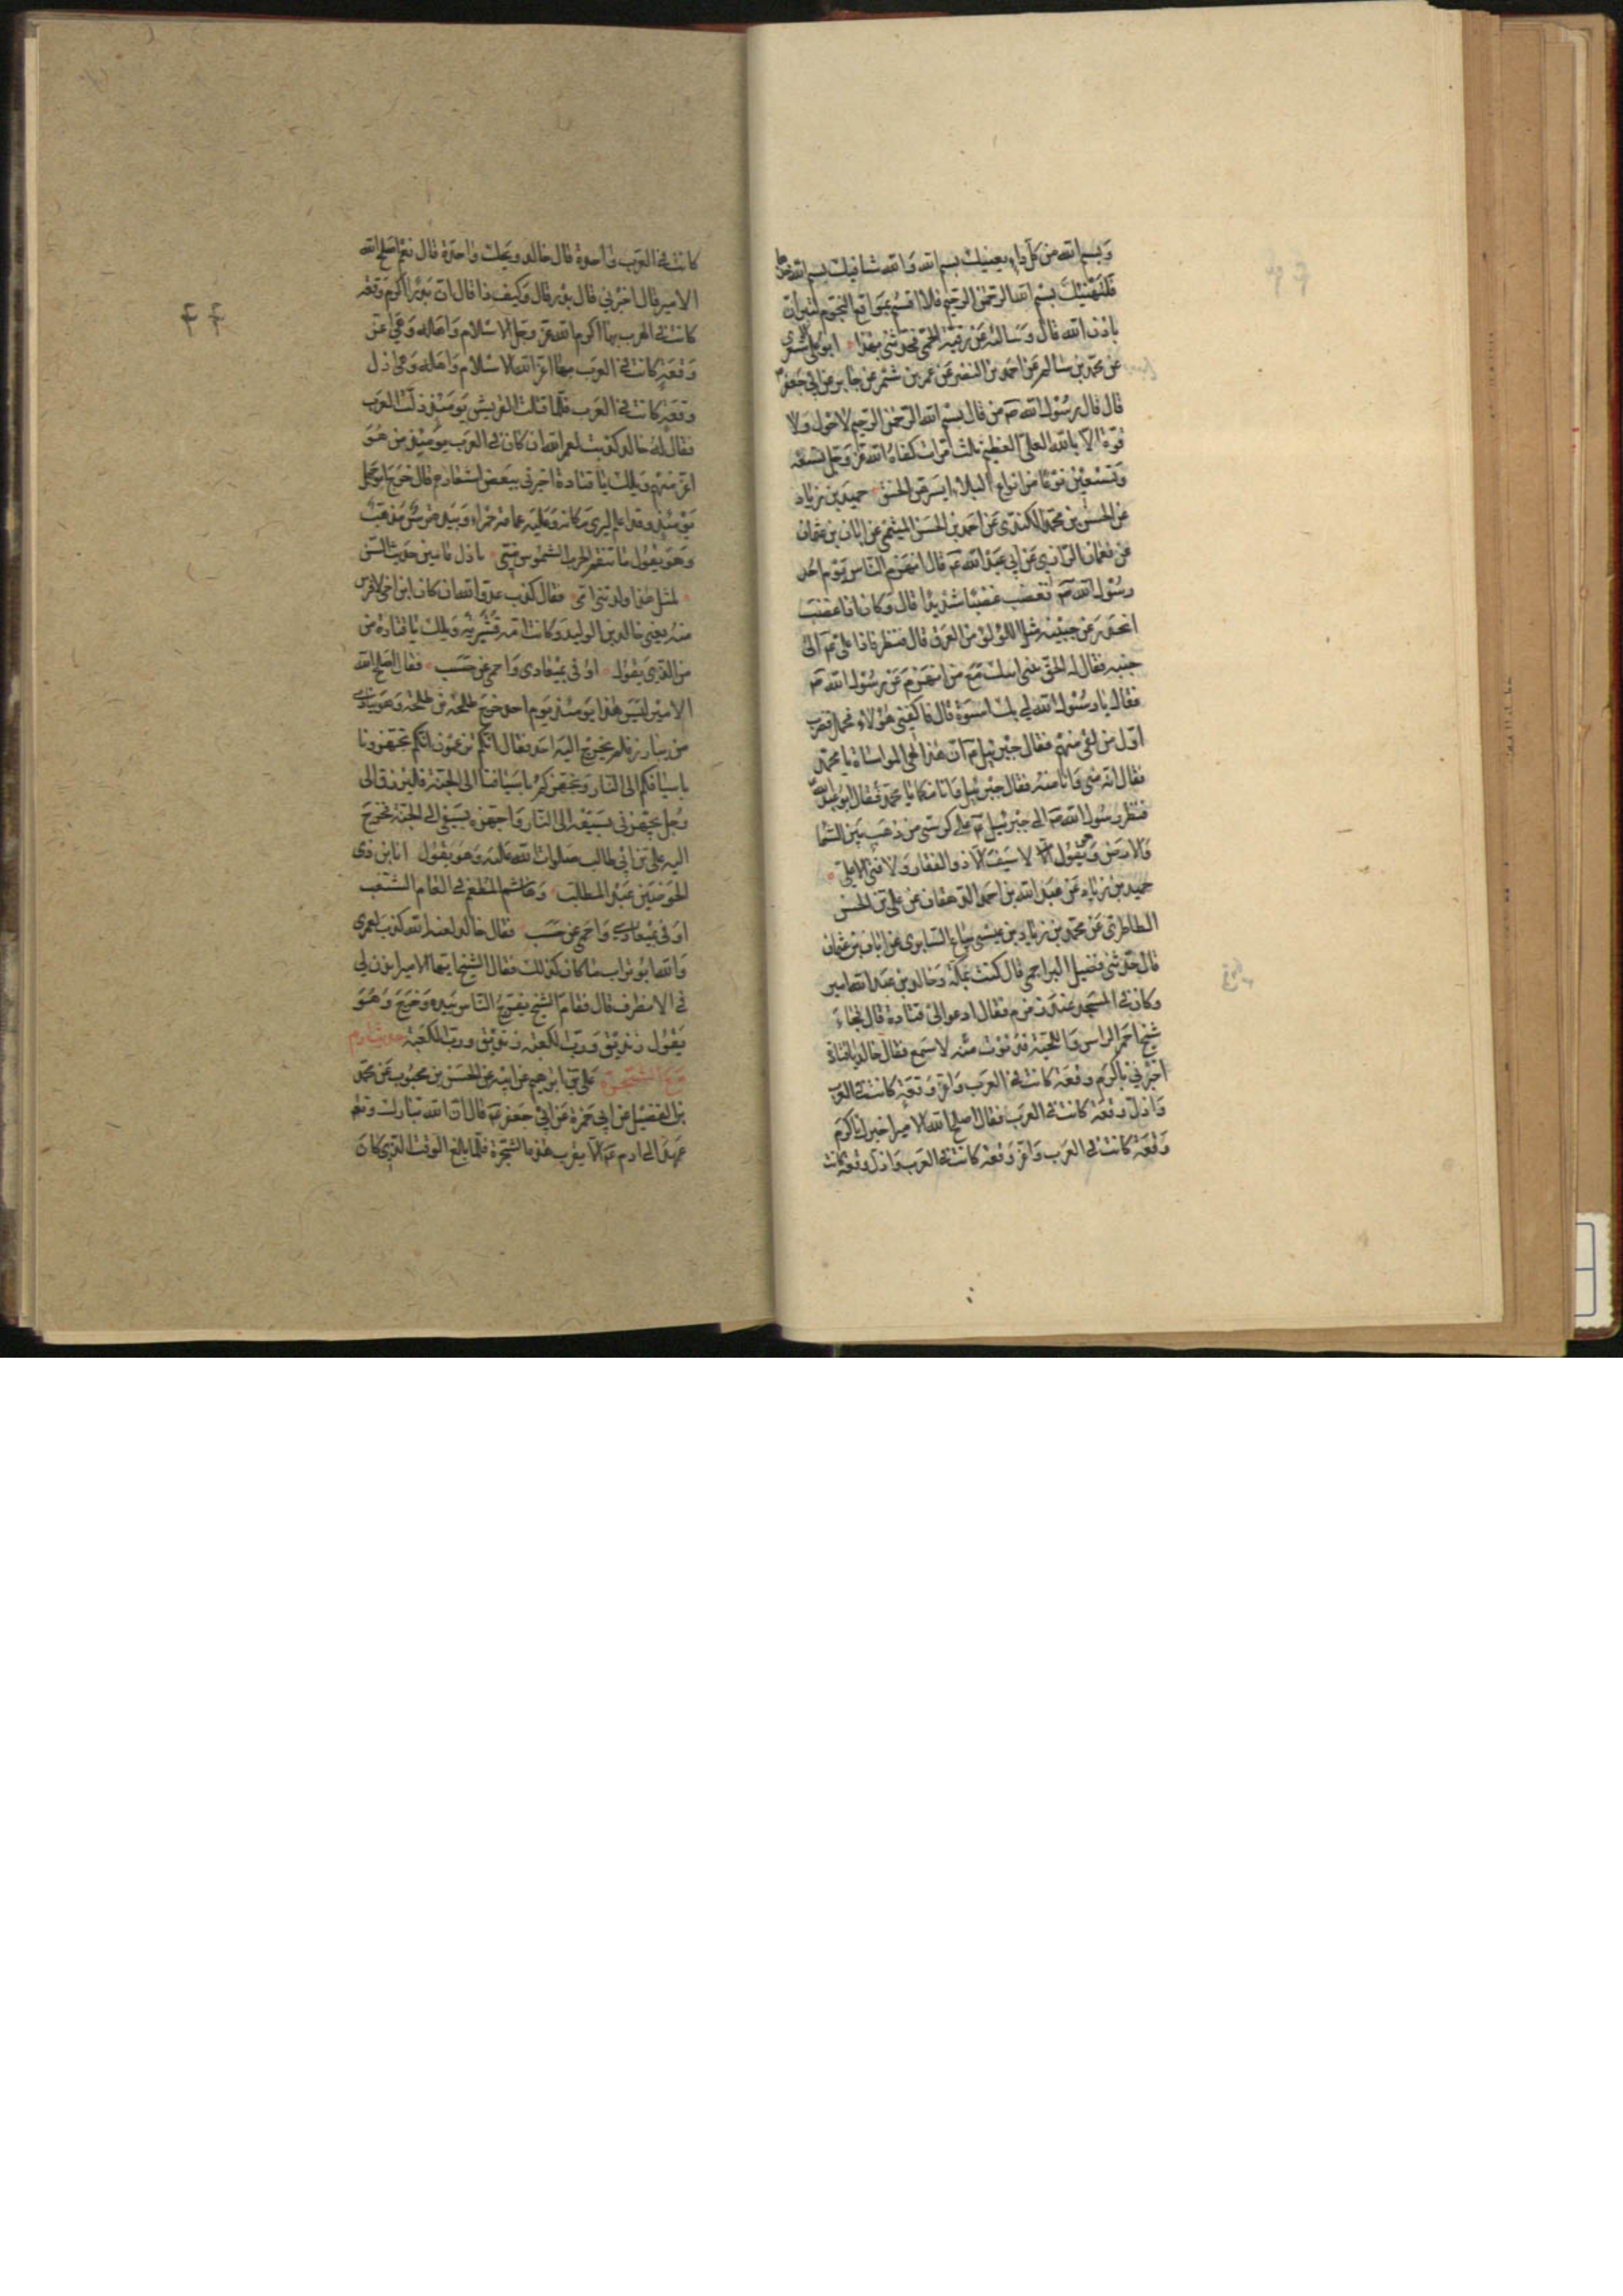 وبسم الله من كل داء يعنيك بسم الله والله شافيك بسم الله خذها
فلتهنيك بسم الله الرحمن الرحيم فلا اقسم بمواقع النجوم لتبرأن
باذن الله قال وسالته عن رقية الحمى فحدثنى بهذا ابو على الاشعرى
عن محمد بن سالم عن احمد بن النضر عن عمر بن شمر عن جابر عن ابي جعفر ع
قال قال رسول الله ص من قال بسم الله الرحمن الرحيم لا حول ولا
قوة الا بالله العلى العظيم ثلث مرات كفاه الله عز وجل تسعة
وتسعين نوعا من انواع البلاء ايسرهن الخنق حميد بن زياد
عن الحسن بن محمد الكندى عن احمد بن الحسن الميثمى عن ابان بن عثمان
عن نعمان الرازى عن ابي عبد الله ع قال انهزم الناس يوم احد
رسول الله ص فغضب غضبا شديدا قال وكان اذا غضب
انحدر عن جبينه مثل اللؤلؤ من العرق قال فنظر فاذا على ع الى
جنبه فقال له الحق ببنى ابيك مع من انهزم عن رسول الله ص
فقال يا رسول الله لي بك اسوة قال فاكفنى هؤلاء فحمل فضرب
اول من لقى منهم فقال جبرئيل ع ان هذا لهى المواساة يا محمد
فقال انه منى وانا منه فقال جبرئيل وانا منكما يا محمد فقال ابو عبد الله
فنظر رسول الله ص الى جبرئيل ع على كرسى من ذهب بين السما
والارض وهو يقول لا سيف الا ذو الفقار ولا فتى الا على
حميد بن زياد عن عبد الله بن احمد الدهقان عن على بن الحسن
الطاطرى عن محمد بن زياد بن عيسى بياع السابرى عن ابان بن عثمان
قال حدثنى فضيل البراجمى قال كنت بمكة وخالد بن عبد الله امير
وكان في المسجد عند زمزم فقال ادعوا لى قتادة قال فجاء
شيخ احمر الراس واللحية فدنوت منه لاسمع فقال خالد يا قتادة
اخبرني باكرم وقعة كانت في العرب واعز وقعة كانت في العرب
واذل وقعة كانت في العرب فقال اصلح الله الامير اخبرك باكرم
وقعة كانت في العرب واعز وقعة كانت في العرب واذل وقعة كانت
كانت في العرب واحدة قال خالد ويحك واحدة قال نعم اصلح الله
الامير قال اخبرني قال بدر قال وكيف ذا قال ان بدرا اكرم وقعة
كانت في العرب بها اكرم الله عز وجل الاسلام واهله وهى اعز
وقعة كانت في العرب بها اعز الله الاسلام واهله وهى اذل
وقعة كانت في العرب فلما قتلت القريش يومئذ ذلت العرب
فقال له خالد كذبت لعمر الله ان كان في العرب يومئذ من هو
اعز منهم ويلك يا قتادة اخبرني ببعض اشعارهم قال خرج ابو جهل
يومئذ وقد اعلم ليرى مكانه وعليه عمامة حمراء وبيده ترس مذهب
وهو يقول ما تنقم الحرب الشموس منى بازل عامين حديث السن
لمثل هذا ولدتنى امى فقال كذب عدو الله ان كان ابن اخى لافرس
منه يعنى خالد بن الوليد وكانت امه قشيرية ويلك يا قتادة من
من الذي يقول اوفى بميعادى واحمى عن حسب فقال اصلح الله
الامير ليس هذا يومئذ هذا يوم احد خرج طلحة بن ابي طلحة وهو ينادى
من يبارز فلم يخرج اليه احد فقال انكم تزعمون انكم تجهزونا
باسيافكم الى النار ونجهزكم باسيافنا الى الجنة فليبرزن الى
رجل يجهزنى بسيفه الى النار واجهزه بسيفى الى الجنة فخرج
اليه على بن ابي طالب صلوات الله عليه وهو يقول انا ابن ذى
الحوضين عبد المطلب وهاشم المطعم في العام السغب
اوفى بميعادى واحمى عن حسب فقال خالد لعنه الله كذب لعمرى
والله ابو تراب ما كان كذلك فقال الشيخ ايها الامير ائذن لي
في الانصراف قال فقام الشيخ يفرج الناس بيده وخرج وهو
يقول زنديق ورب الكعبة زنديق ورب الكعبة حديث ادم
مع الشجرة على بن ابرهيم عن ابيه عن الحسن بن محبوب عن محمد
بن الفضيل عن ابي حمزة عن ابي جعفر ع قال ان الله تبارك وتع
عهد الى ادم ع الا يقرب هذه الشجرة فلما بلغ الوقت الذي كان